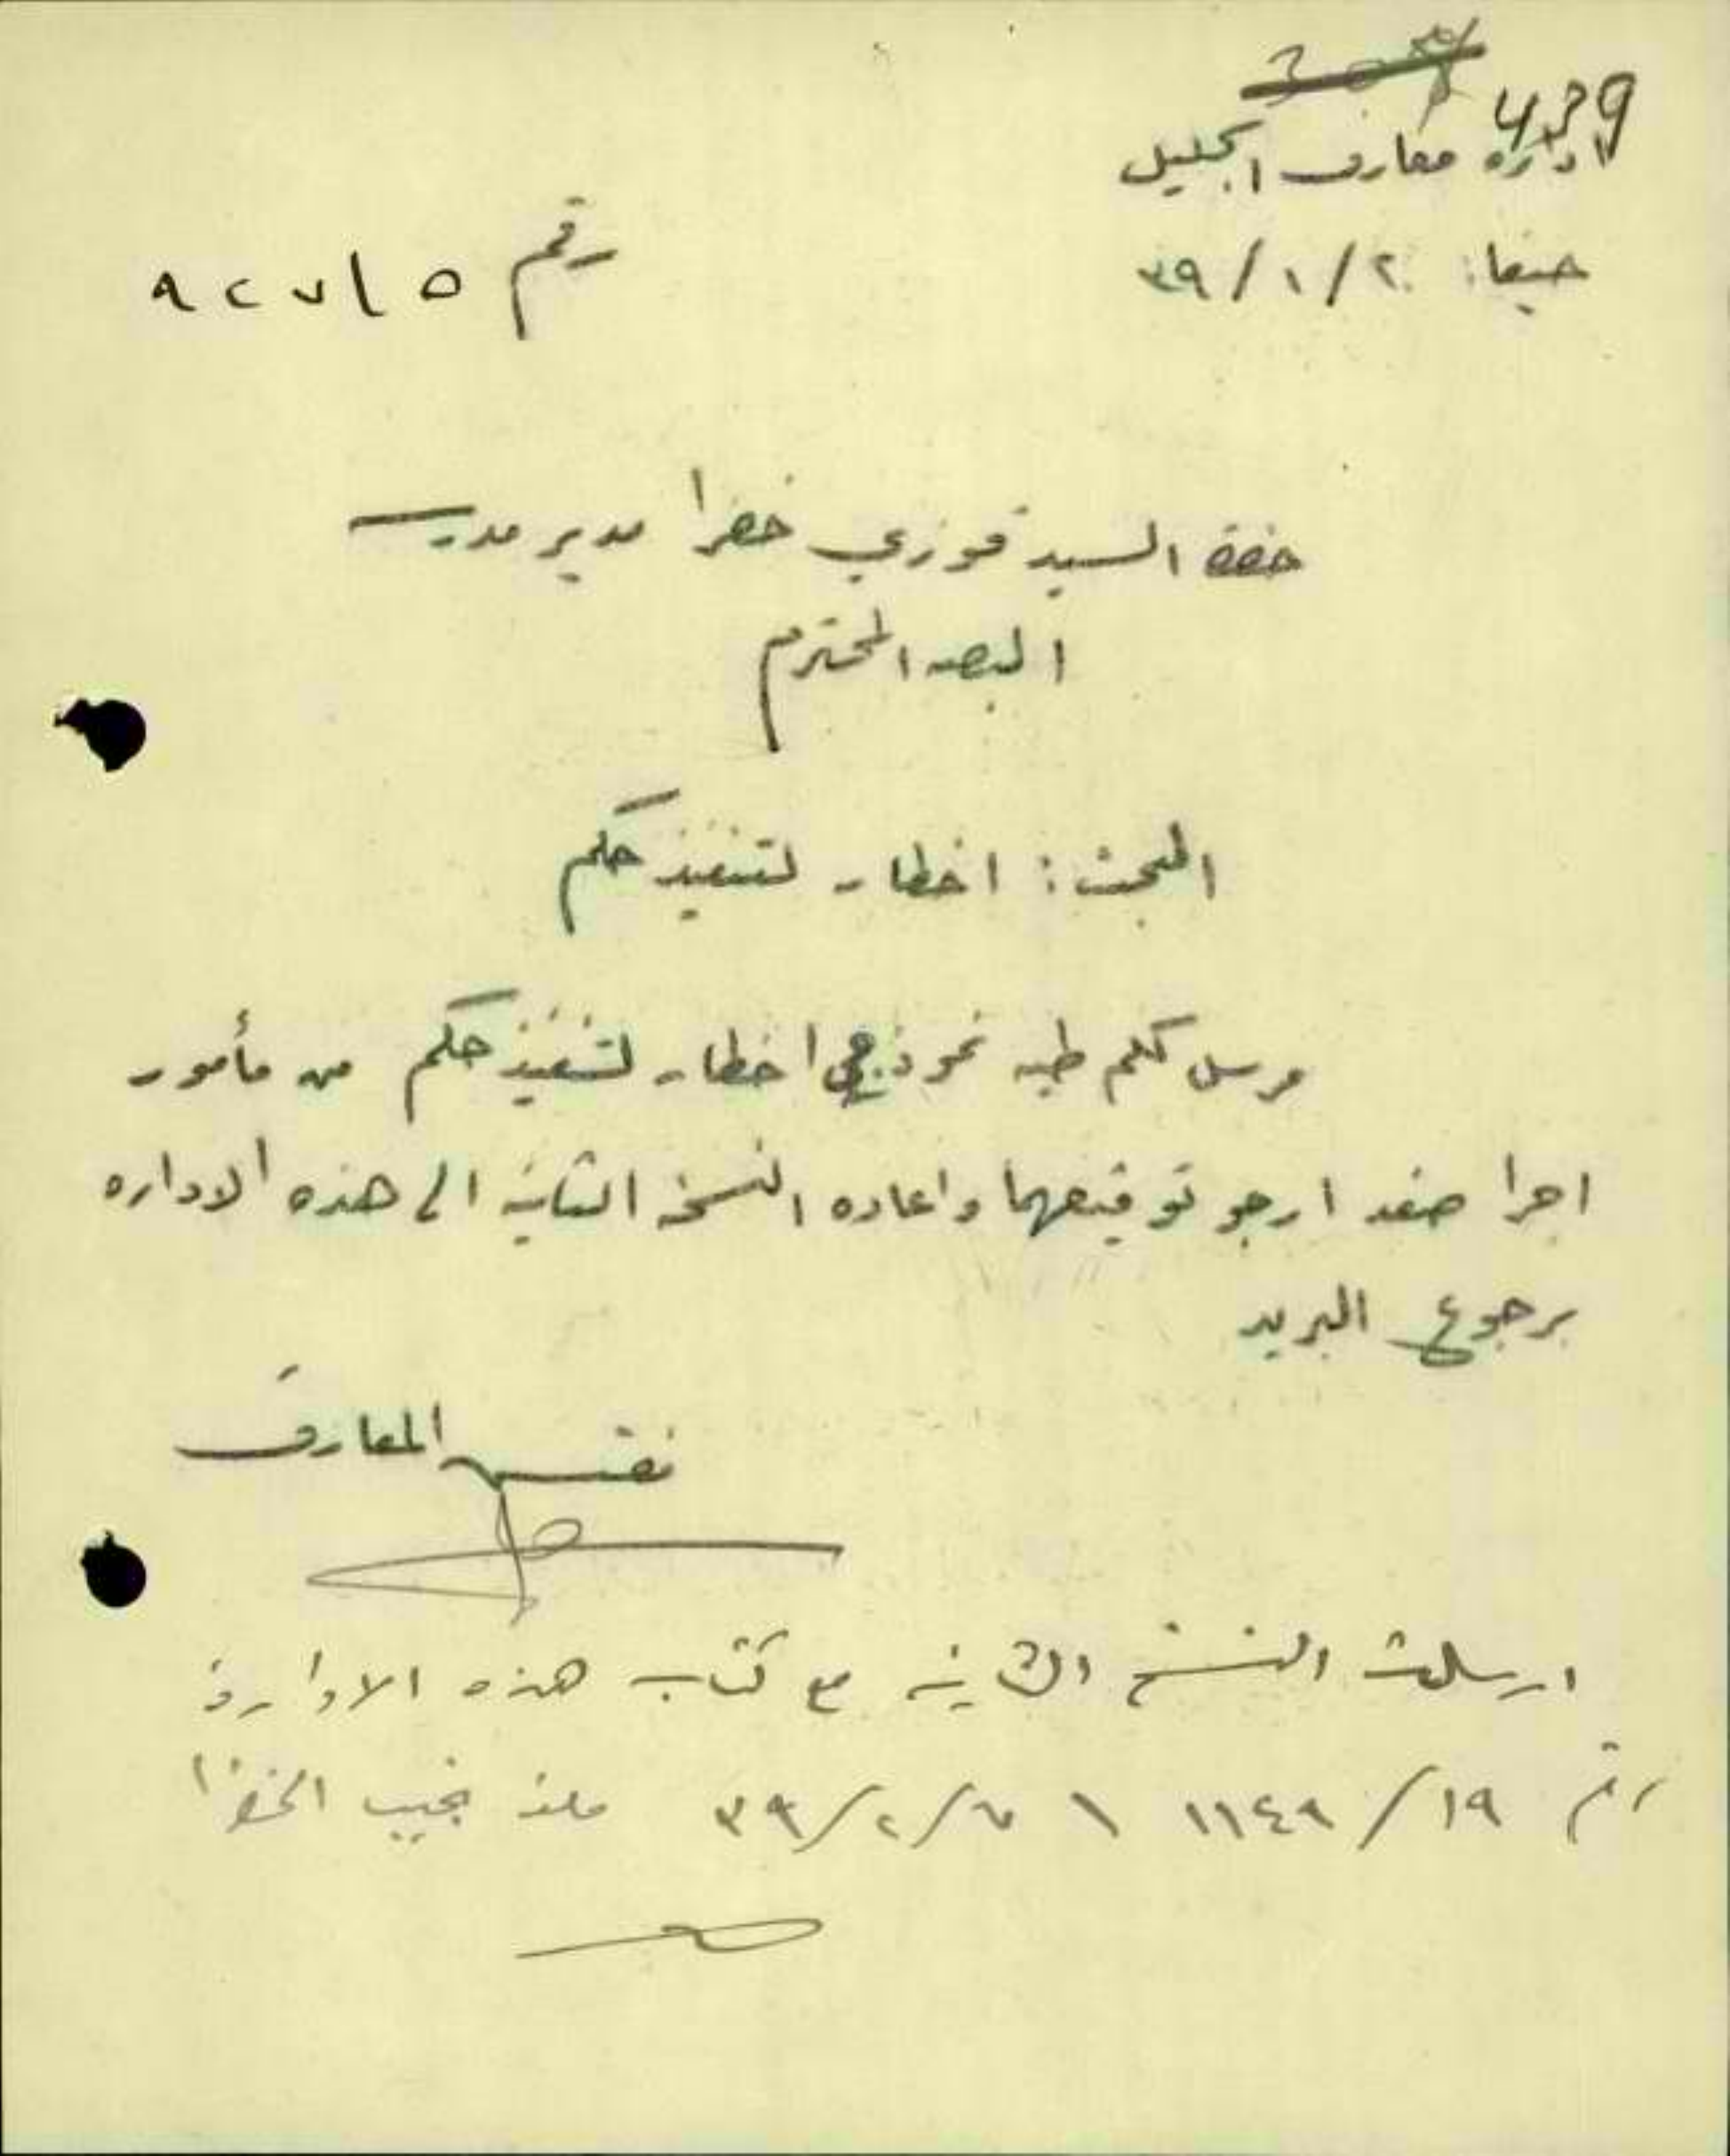 439
ادارة معارف الجليل
حيفا: ٢٠/١/٣٩
رقم ٥/٩٢٧
حضرة السيد فوزي خضرا مدير مدرسة
البصه المحترم
المبحث: اخطار لتنفيذ حكم
مرسل لكم طيه نموذجي اخطار لتنفيذ حكم من مأمور
اجرا صفد ارجو توقيعهما واعاده النسخه الثانيه الى هذه الاداره
برجوع البريد
مفتش المعارف
ارسلت النسخ الثانيه مع كتاب هذه الادارة
رقم ١٩/١١٤٩ ٧/٢/٣٩ ملف نجيب الخضرا